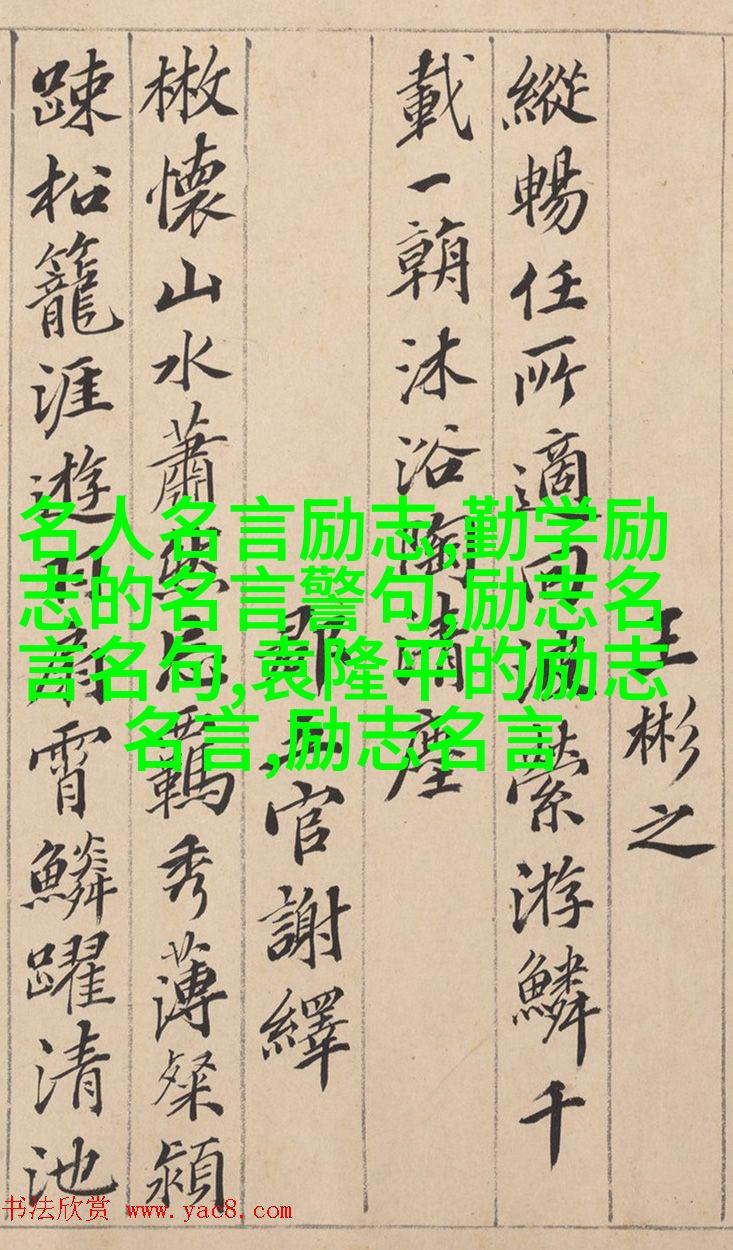 王彬之
縱暢任所適回波縈游鱗千
載一朝沐浴陶清塵
郡五官謝繹
散懷山水蕭然忘羈秀薄粲穎
踈松籠涯遊羽扇霄鱗躍清池
名人名言励志,勤学励
志的名言警句,励志名
言名句,袁隆平的励志
名言,励志名言
书法欣赏 www.yac8.com